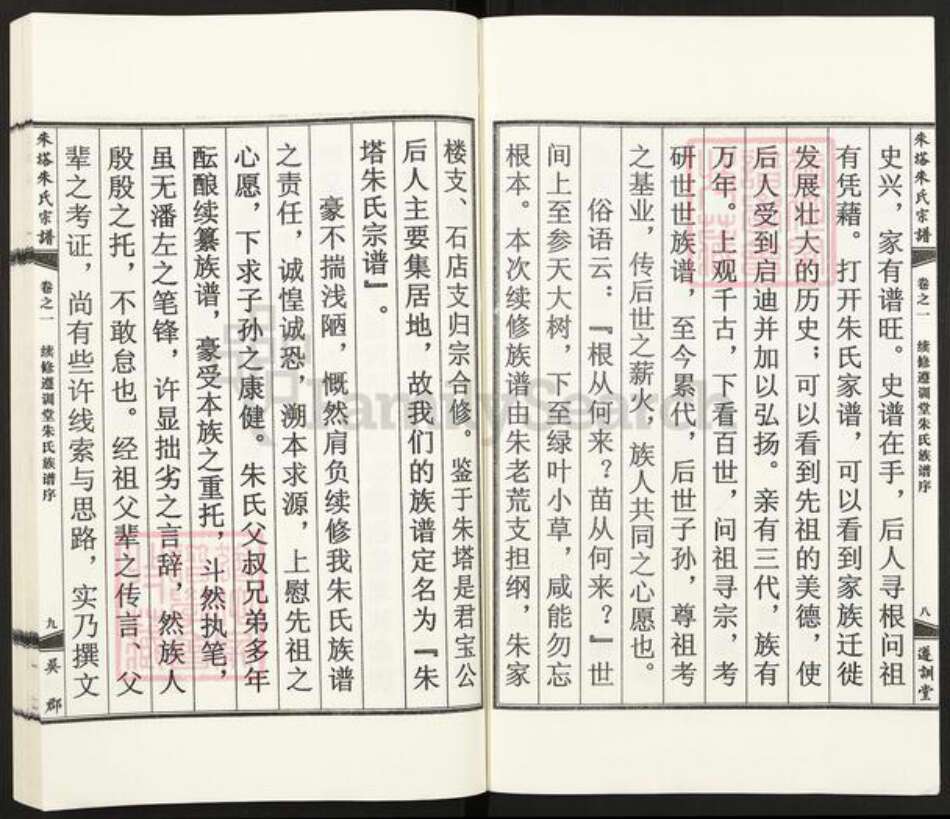 朱塔朱氏宗譜
卷之一
续修遵训堂朱氏族谱序
八
遵訓堂
史兴，家有谱旺。史谱在手，后人寻根问祖
有凭藉。打开朱氏家谱，可以看到家族迁徙
发展壮大的历史；可以看到先祖的美德，使
后人受到启迪并加以弘扬。亲有三代，族有
万年。上观千古，下看百世，问祖寻宗，考
研世世族谱，至今累代，后世子孙，尊祖考
之基业，传后世之薪火，族人共同之心愿也。
俗语云：『根从何来？苗从何来？』世
间上至参天大树，下至绿叶小草，咸能勿忘
根本。本次续修族谱由朱老荒支担纲，朱家
楼支、石店支归宗合修。鉴于朱塔是君宝公
后人主要集居地，故我们的族谱定名为『朱
塔朱氏宗谱』。
豪不揣浅陋，慨然肩负续修我朱氏族谱
之责任，诚惶诚恐，溯本求源，上慰先祖之
心愿，下求子孙之康健。朱氏父叔兄弟多年
酝酿续纂族谱，豪受本族之重托，斗然执笔，
虽无潘左之笔锋，许显拙劣之言辞，然族人
殷殷之托，不敢怠也。经祖父辈之传言、父
辈之考证，尚有些许线索与思路，实乃撰文
朱塔朱氏宗譜
卷之一
续修遵训堂朱氏族谱序
九
吴郡
FamilySearch